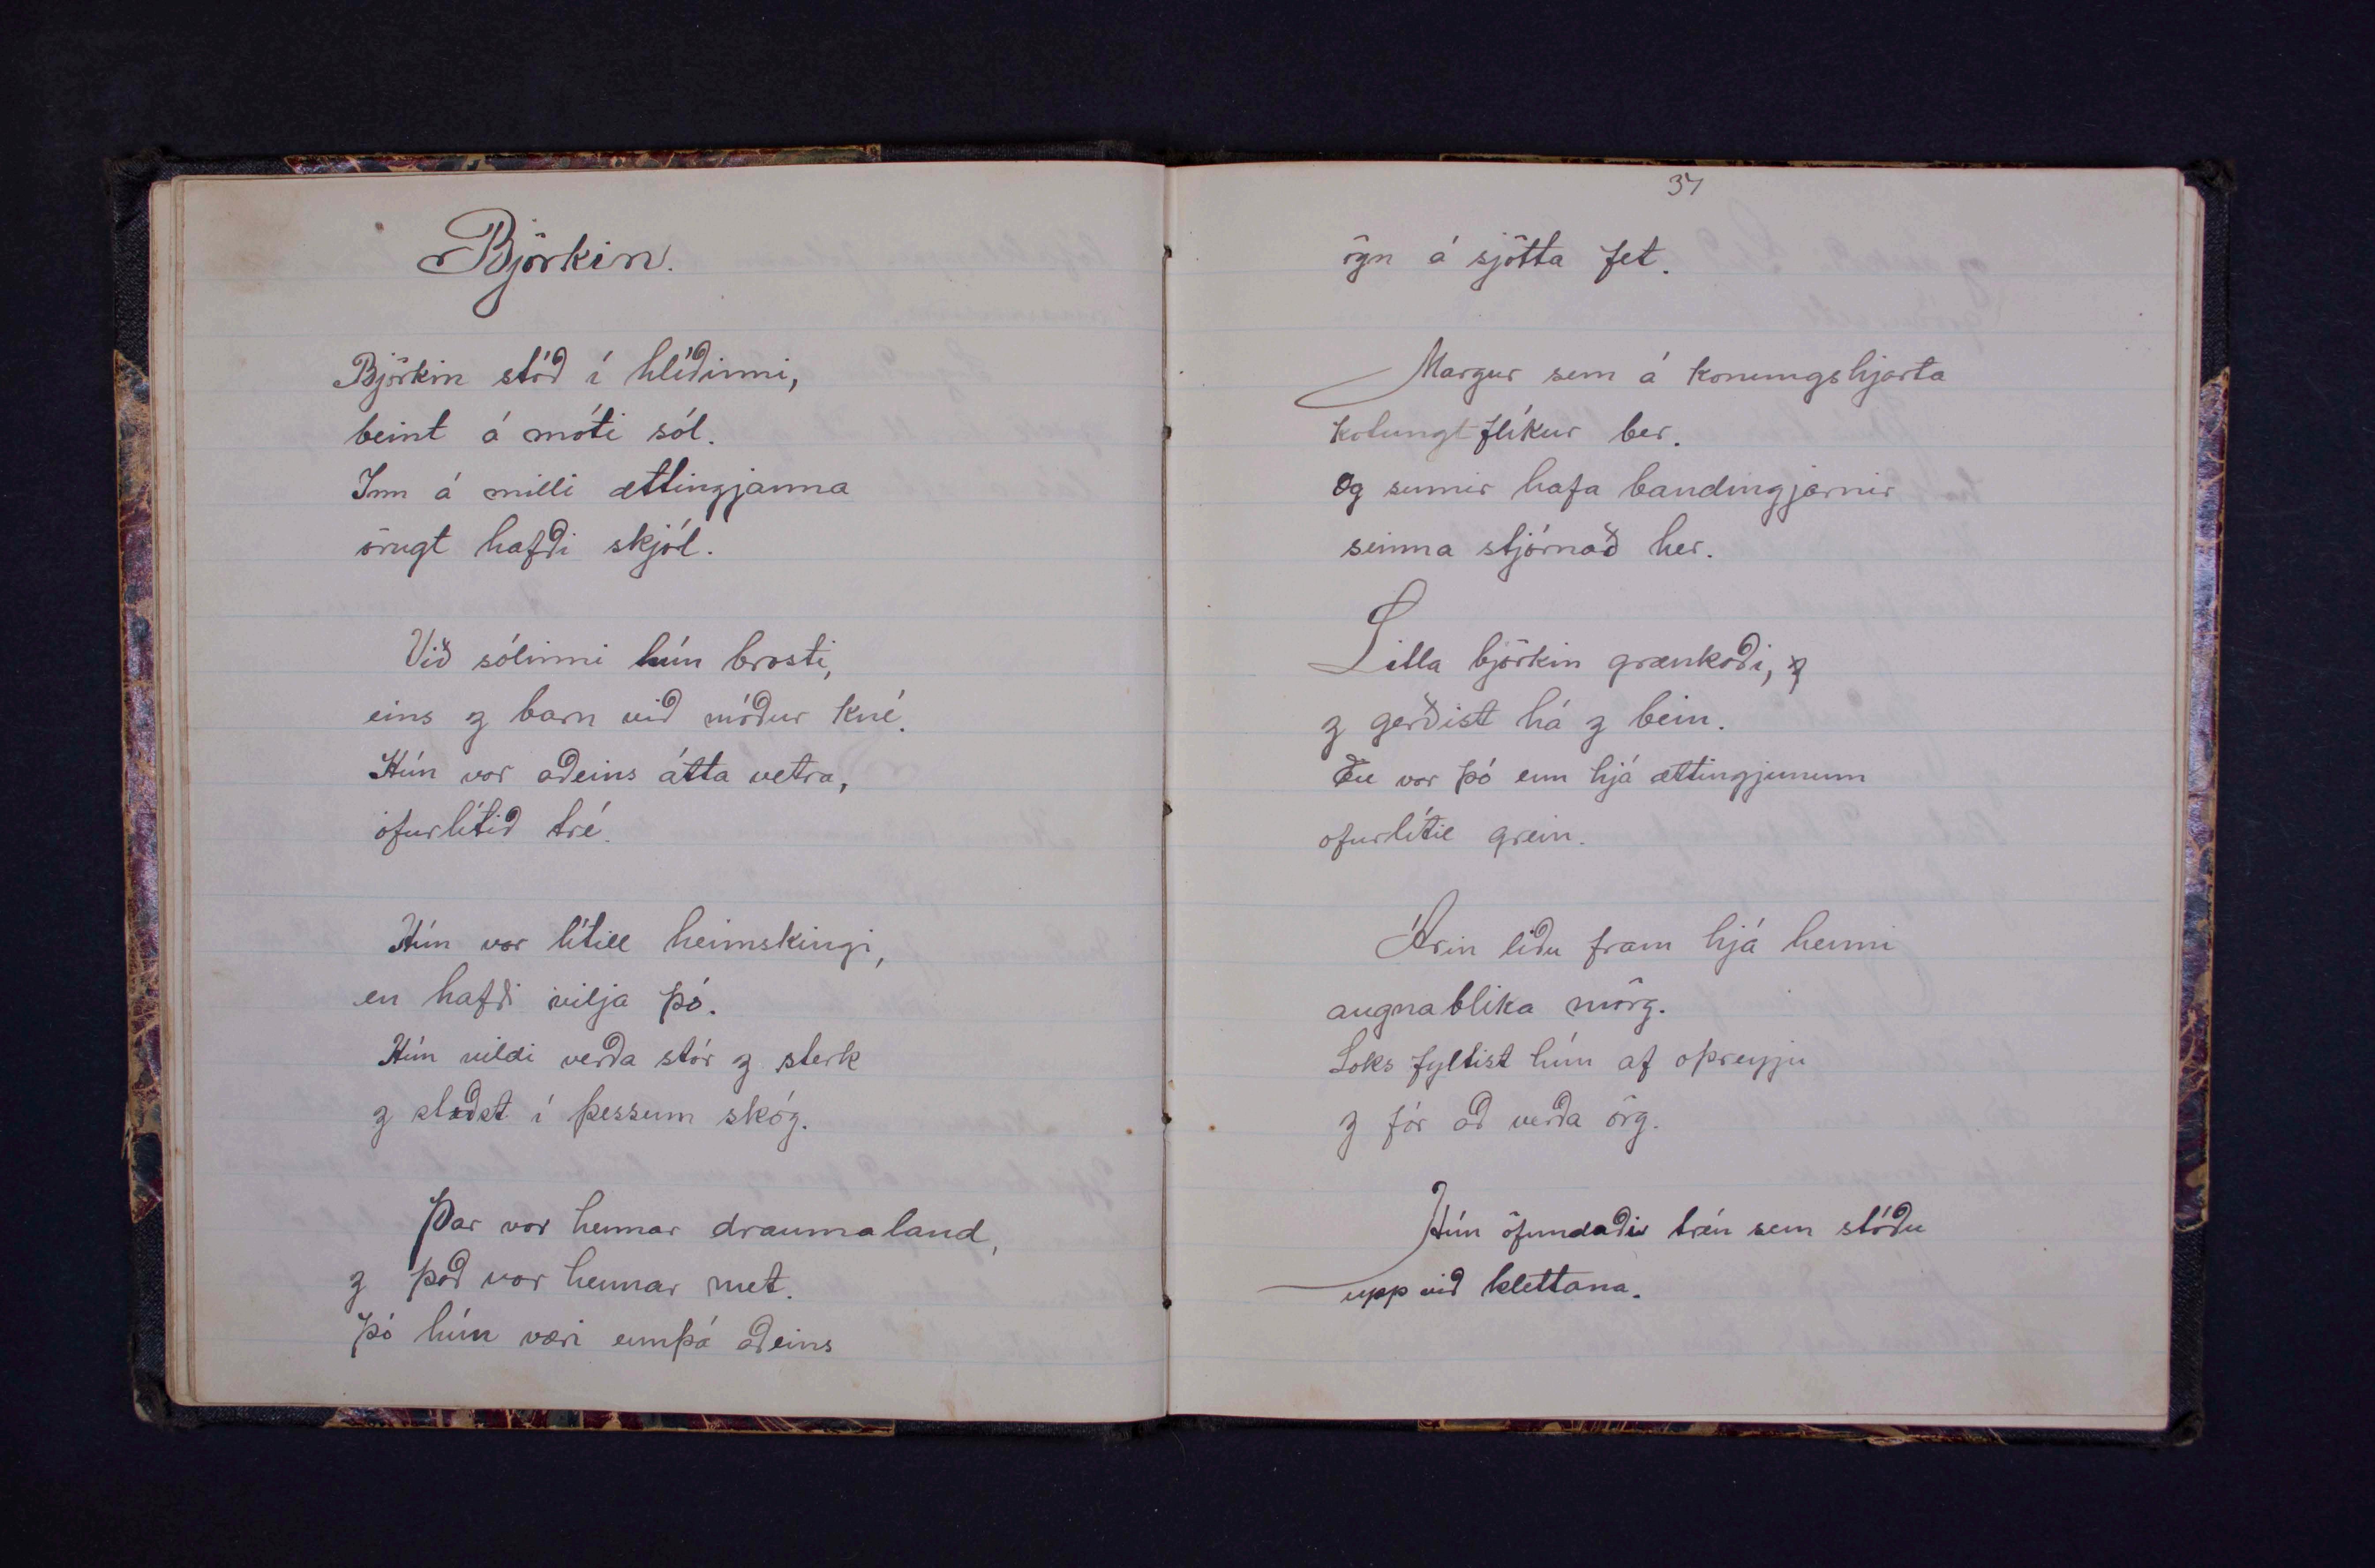 Björkin.
Björkin stóð í hlíðinni,
beint á móti sól.
Inn á milli ættingjanna
örugt hafði skjól.
Við sólinni hún brosti,
eins og barn við móður kné.
Hún var aðeins átta vetra,
ofurlítið tré.
Hún var lítill heimskingi,
en hafði vilja þó.
Hún vildi verða stór og sterk
og í þessum skóg.
Þar var hennar draumaland,
og það var hennar met.
Þó hún væri ennþá aðeins
31
ögn á sjötta fet.
Margur sem á konungshjarta
kotungsflíkur ber.
Og sumir hafa bandingjarnir
seinna stjórnað her.
Litla björkin grænkaði,
og gerðist há og bein.
En var þó enn hjá ættingjunum
ofurlítil grein.
Árin liðu fram hjá henni
augnablika mörg.
Loks fyltist hún af óþreyju
og fór að verða örg.
Hún öfundaði trén sem stóðu
upp við klettana.